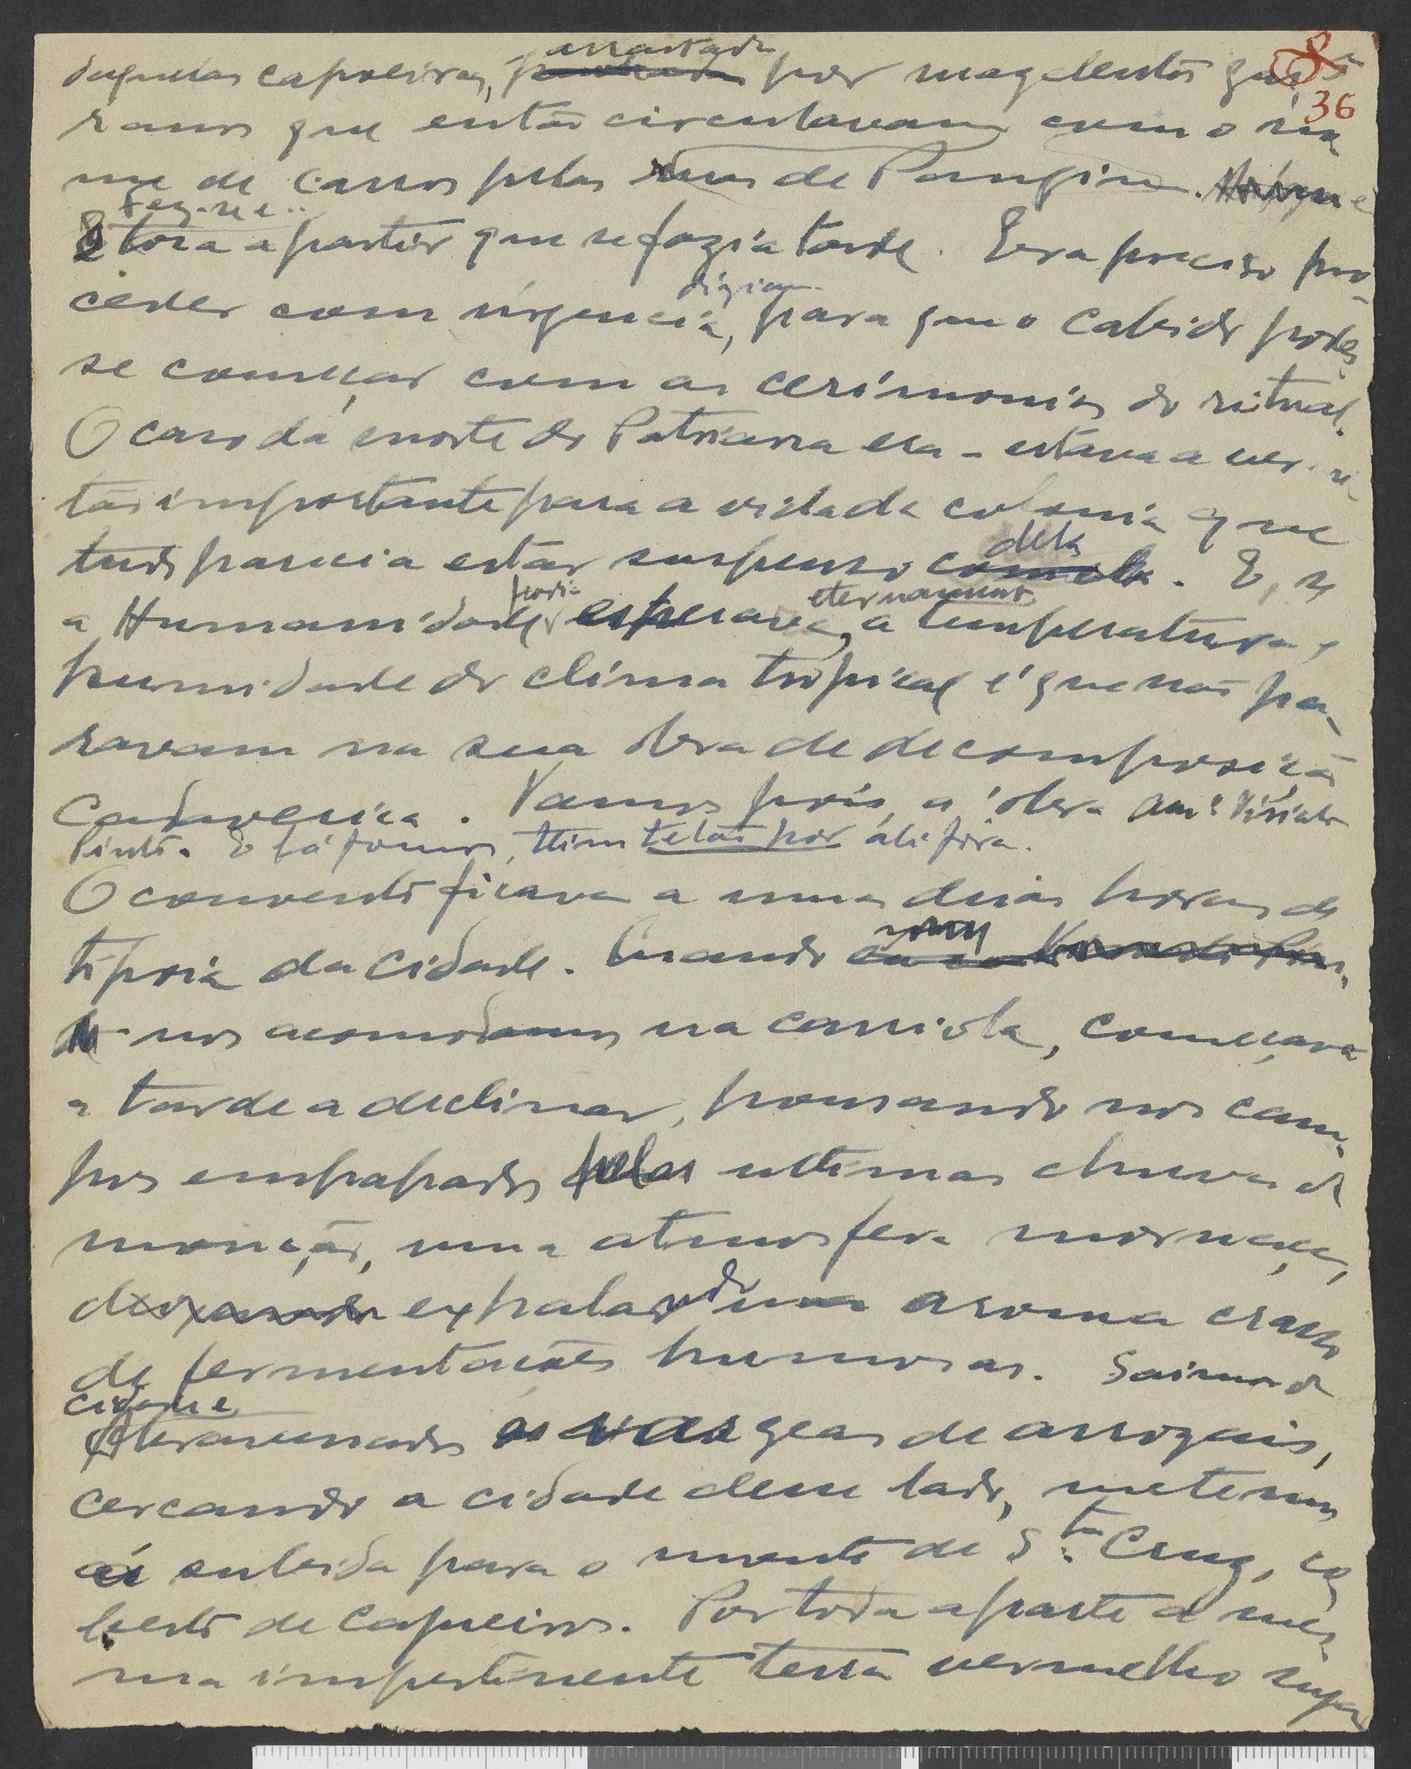 36
daquelas capoeiras, arrastada por magelentos gua-
ranos que então circulavam com o no-
me de carros pelas ruas de Pangim.
E toca a partir que se fazia tarde. Era preciso pro-
ceder com urgencia, diziam para que o Cabido podes-
se começar com as cerimonias do ritual.
O caso da morte do Patriarca era - estava a ver-se
tão importante para a vida da colonia que
tudo parecia estar suspenso dela. E, se
a Humanidade podia esperar eternamente, a temperatura e
humidade do clima tropical é que não pa-
ravam na sua obra de decomposição
cadaverica. Vamos pois, á obra
Pinto. E lá fomos, por ali fora.
O convento ficava a umas duas horas de
tipoia da cidade. Quando
nos acomodamos na carriola, começava
a tarde a declinar, pousando nos cam-
pos empapados pelas ultimas chuvas da
monção, uma atmosfera mornaça,
deixando exhalando um aroma crasso
de fermentações humosas. Saimos da
cidade
Atravessados as vargeas de arrozais,
cercando a cidade desse lado, metemos
á subida para o monte de Sta. Cruz, co-
berto de cajueiros. Por toda a parte a mes-
ma impertinente terra vermelha